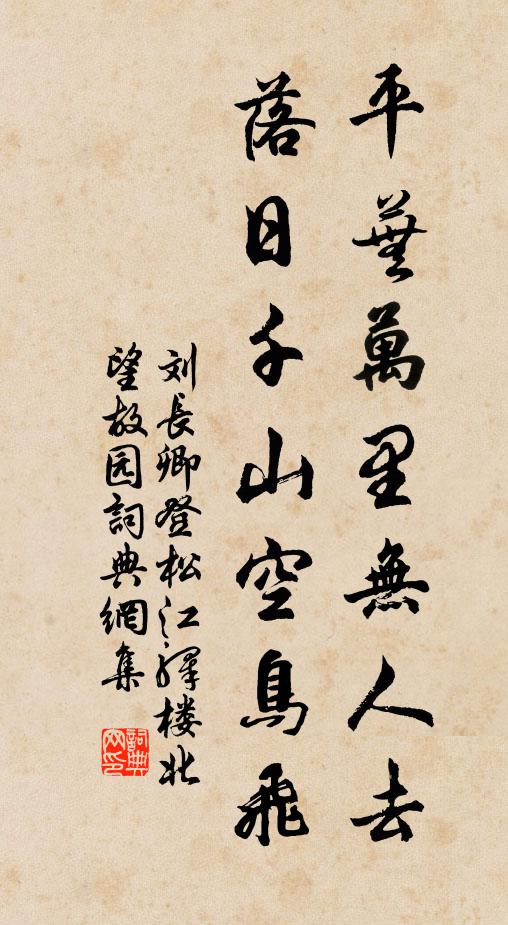 平蕪萬里無人去
落日千山空鳥飛
刘長卿登松江驛楼北
望故园詞典網集
詞典网印